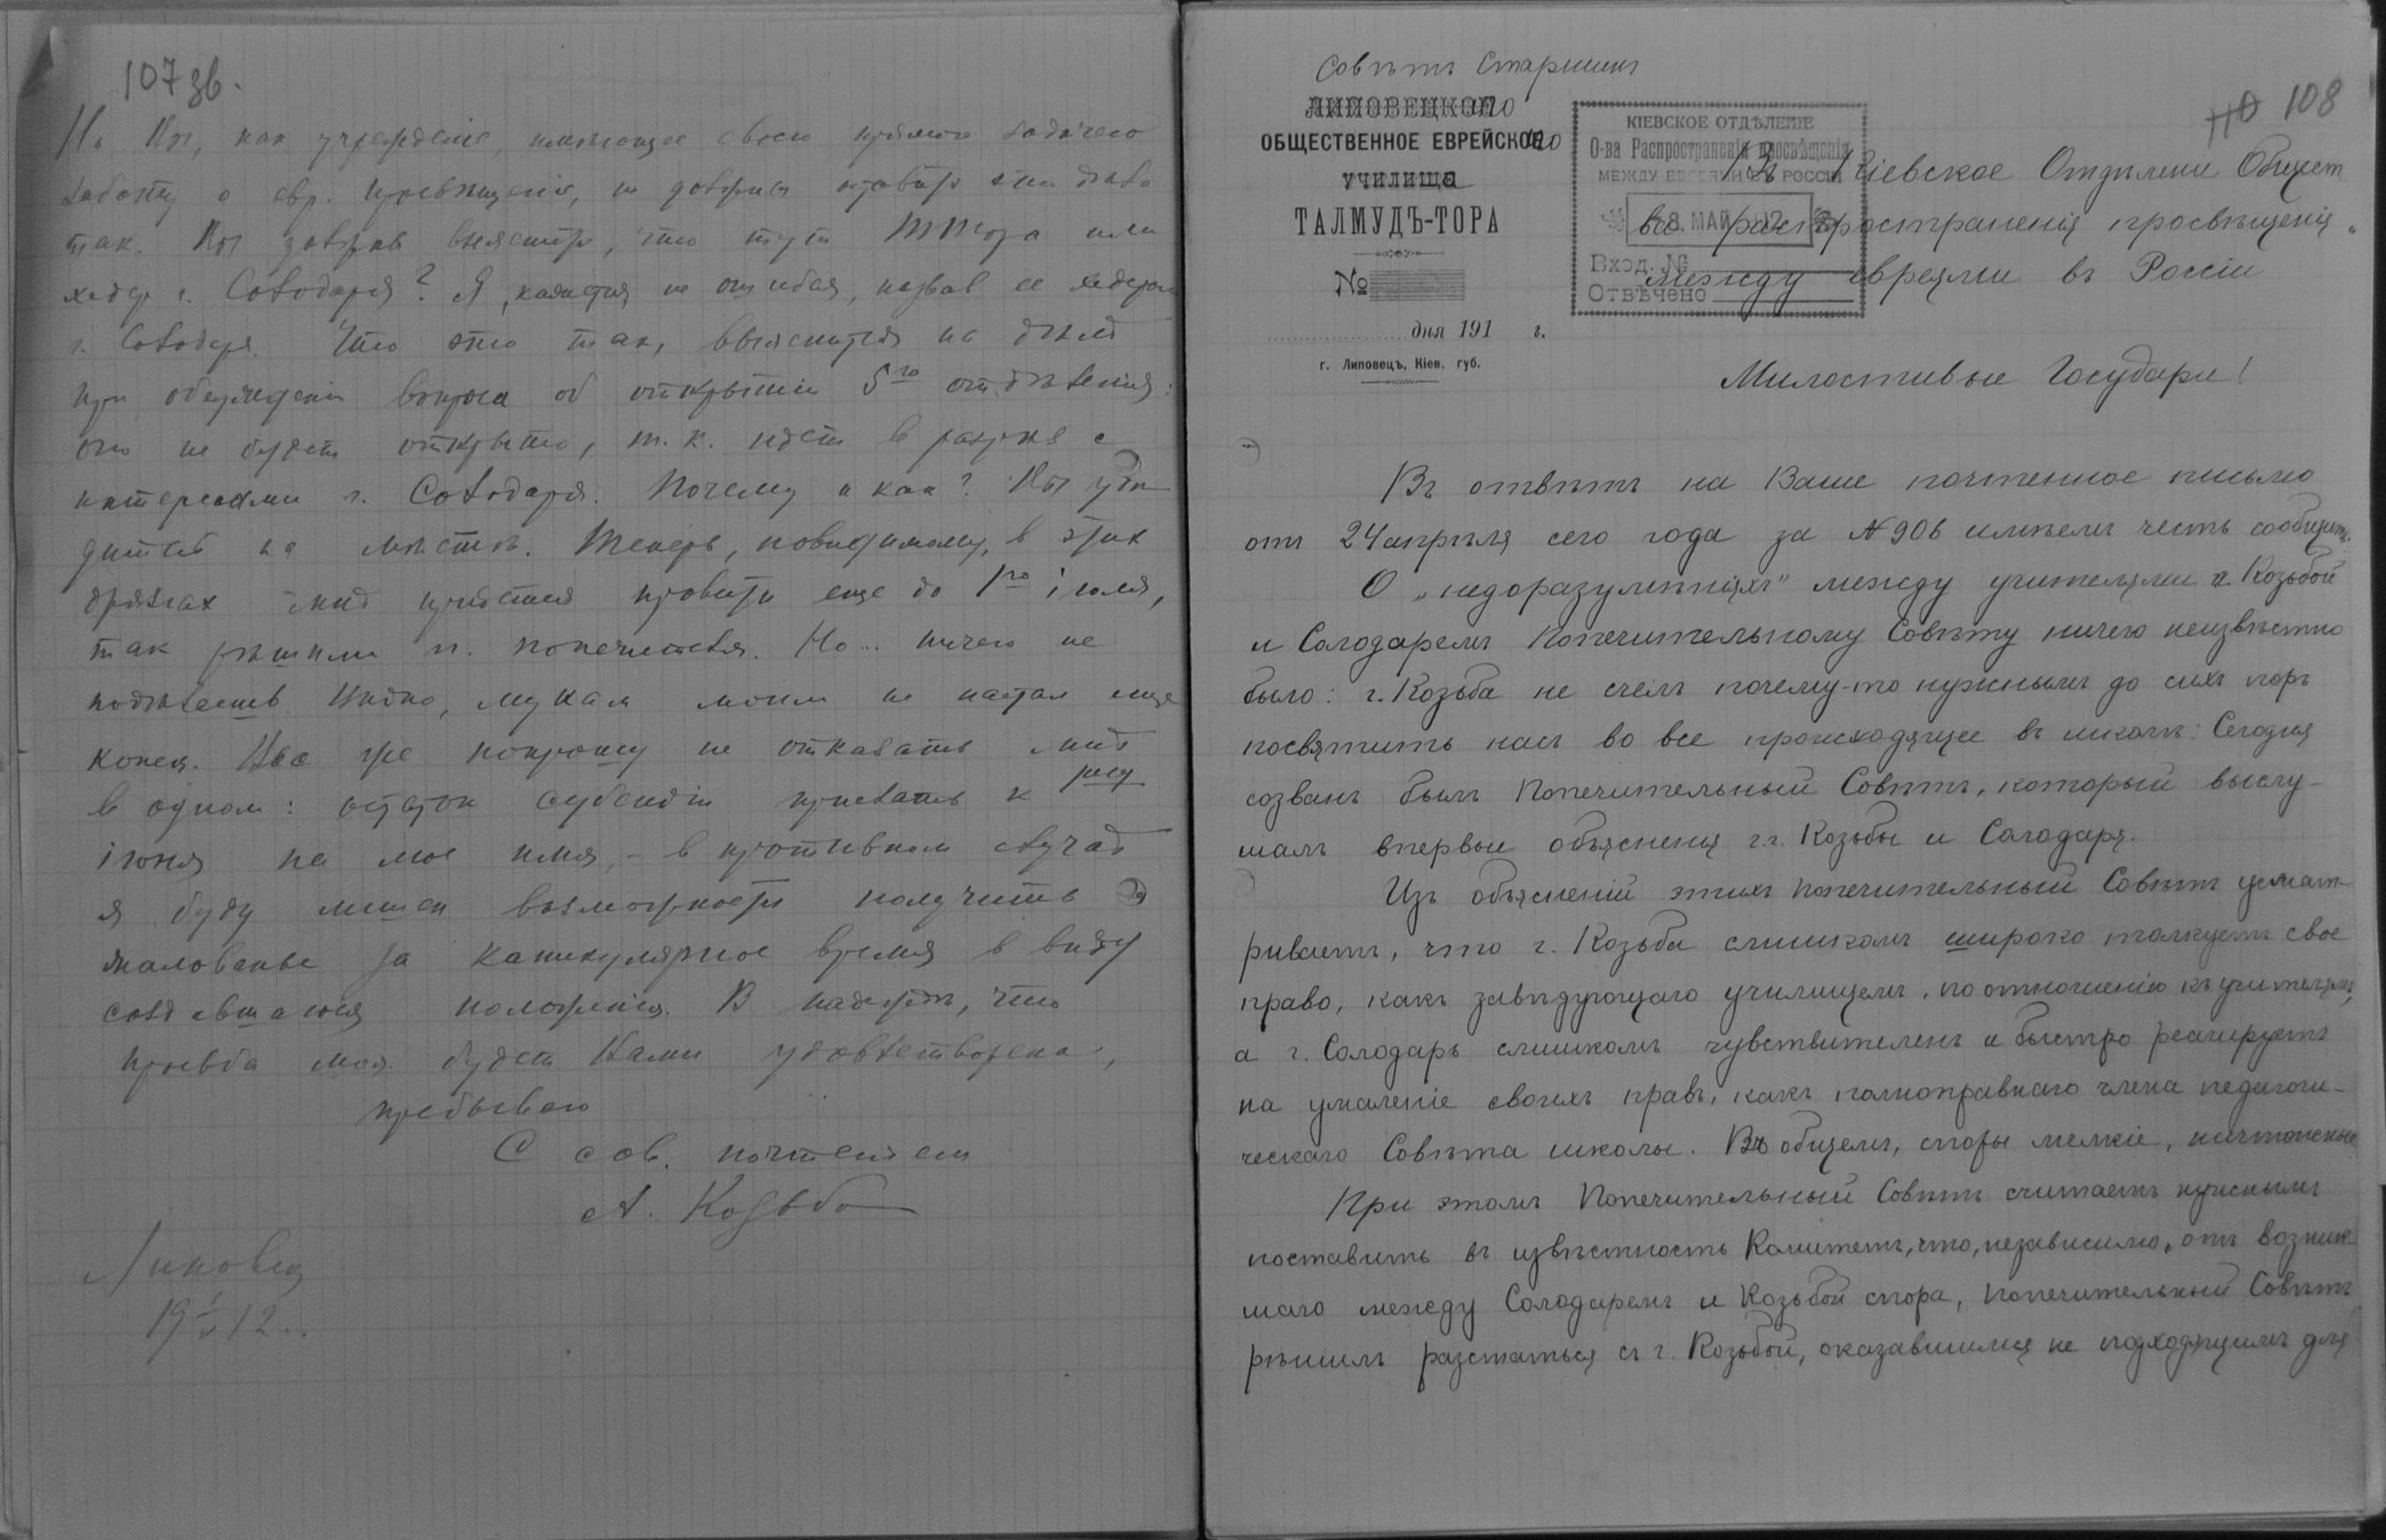 107 зв.
Но Вы, как учрежденіе, имѣющее своею прямою задачею
заботу о евр. просвѣщеніи, не должны оставить это дѣло
так. Вы должны выяснить, что тут ТТора или
хедер г. Солодаря? Я, кажется, не ошибся, назвав ее хедером
г. Солодаря. Что это так, выяснится на дѣлѣ
при обсужденіи вопроса об открытіи 5го отдѣленія:
оно не будет открыто, т. к. идет в разрѣз с
интересами г. Солодаря. Почему и как? Вы убѣ
дитесь на мѣстѣ. Теперь, повидимому, в этих
дрязгах мнѣ придется провести еще до 1го іюля,
так рѣшили гг. попечители. Но... ничего не
подѣлаешь. Видно, мукам моим не настал еще
конец. Вас же попрошу не отказать мнѣ
в одном: остаток субсидіи прислать к
іюня на мое имя, - в противном случаѣ
я буду лишен возможности получить
жалованье за каникулярное время в виду
создавшагося положенія. В надеждѣ, что
просьба моя будет Вами удовлетворена,
пребываю
С сов. почтеніем
А. Козьба
Липовец
19 V 12
Совѣтъ Старшинъ
ЛИПОВЕЦКОЕ го
ОБЩЕСТВЕННОЕ ЕВРЕЙСКОЕ го
УЧИЛИЩа
ТАЛМУДЪ-ТОРА
№
дня 191 г.
г. Липовецъ, Кіев. губ.
КІЕВСКОЕ ОТДѢЛЕНІЕ
О-ва Распространенія просвѣщенія
МЕЖДУ ЕВРЕЯМИ ВЪ РОССІИ
МАЙ 1912
Вход. №
Отвѣчено
110 108
Въ Кіевское Отдѣленіе Общест
ва распространенія просвѣщенія
между евреями въ Россіи
Милостивые Государи!
Въ отвѣтъ на Ваше почтенное письмо
отъ 24 апрѣля сего года за № 906 имѣемъ честь сообщить.
О „недоразумѣніяхъ" между учителями г. Козьбой
и Солодаремъ Попечительному Совѣту ничего неизвѣстно
было: г. Козьба не счелъ почему-то нужнымъ до сихъ поръ
посвятить насъ во все происходящее въ школѣ. Сегодня
созванъ былъ Попечительный Совѣтъ, который выслу-
шалъ впервые объясненія г.г. Козьбы и Солодаря.
Изъ объясненій этихъ Попечительный Совѣтъ усмат-
риваетъ, что г. Козьба слишкомъ широко толкуетъ свое
право, какъ завѣдующаго училищемъ, по отношенію къ учителямъ,
а г. Солодарь слишкомъ чувствителенъ и быстро реагируетъ
на умаленіе своихъ правъ, какъ полноправнаго члена педагоги-
ческаго Совѣта школы. Въ общемъ, споры мелкіе, ничтожные
При этомъ Попечительный Совѣтъ считаетъ нужнымъ
поставить въ извѣстность Комитетъ, что, независимо отъ возник-
шаго между Солодаремъ и Козьбой спора, Попечительный Совѣтъ
рѣшилъ разстаться съ г. Козьбой, оказавшимся не подходящимъ для